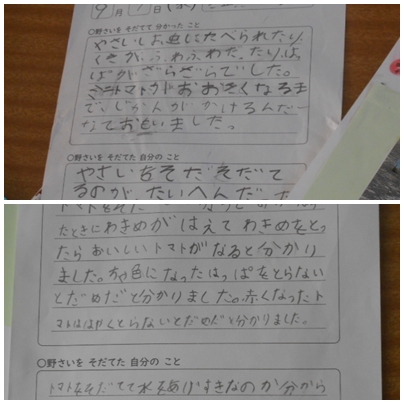 9月7日
○野さいを そだてて 分かった こと
やさいは虫にたべられたり、
くきが、ふわふわだったり、は
ぱがざらざらでした。
ミニトマトがおおきくなるま
で、じかんがかけるんだー
なておもいました。
○野さいを そだてた 自分の こと
やさいをそだそだて
るのが、たいへんだ
トマトをそだ
たときにわきめがはえてわきめをとっ
たらおいしいトマトがなると分かり
ました。ちゃ色になったはっぱをとらない
とだめだと分かりました。赤くなったト
マトははやくとらないとだめだと分かりました。
○野さいを そだてた 自分の こと
トマトをそだてて水をあげすぎなのか分から